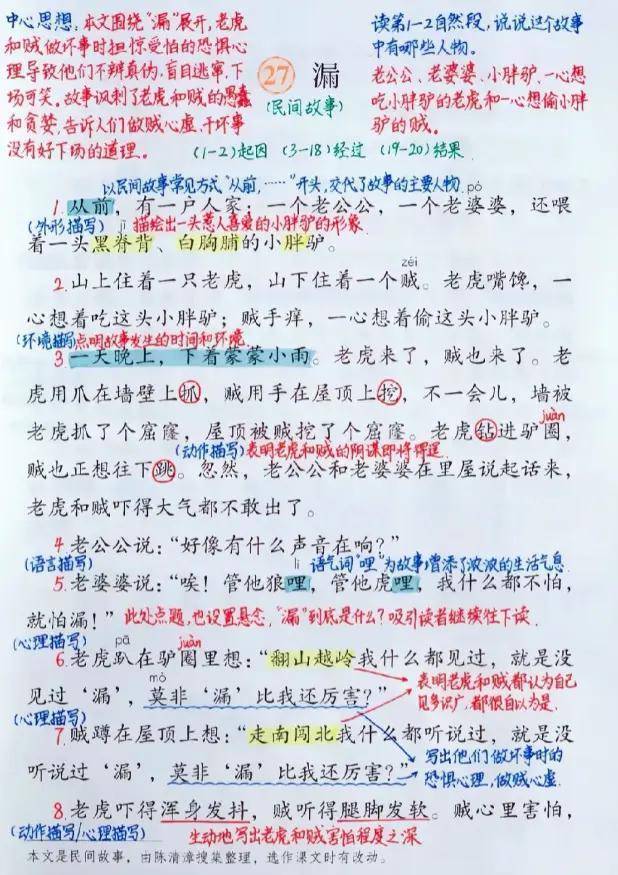 中心思想：本文围绕“漏”展开，老虎
和贼做坏事时担惊受怕的恐惧心
理导致他们不辨真伪，盲目逃窜，下
场可笑。故事讽刺了老虎和贼的愚蠢
和贪婪，告诉人们做贼心虚，干坏事
没有好下场的道理。
27 漏
(民间故事)
读第1-2自然段，说说这个故事
中有哪些人物。
老公公、老婆婆、小胖驴、一心想
吃小胖驴的老虎和一心想偷小胖
驴的贼。
(1-2)起因 (3-18)经过 (19-20)结果
以民间故事常见方式“从前，……”开头，交代了故事的主要人物.
pó
1.从前，有一户人家：一个老公公，一个老婆婆，还喂
(外形描写)
jǐ
描绘出一头惹人喜爱的小胖驴的形象.
着一头黑脊背、白胸脯的小胖驴。
zéi
2.山上住着一只老虎，山下住着一个贼。老虎嘴馋，一
心想着吃这头小胖驴；贼手痒，一心想着偷这头小胖驴。
(环境描写)点明故事发生的时间和环境.
3.一天晚上，下着蒙蒙小雨。老虎来了，贼也来了。老
虎用爪在墙壁上抓，贼用手在屋顶上挖，不一会儿，墙被
juàn
老虎抓了个窟窿，屋顶被贼挖了个窟窿。老虎钻进驴圈，
(动作描写)表明老虎和贼的阴谋即将得逞.
贼也正想往下跳。忽然，老公公和老婆婆在里屋说起话来，
老虎和贼吓得大气都不敢出了。
4.老公公说：“好像有什么声音在响？”
(语言描写)
li
语气词“哩”为故事增添了浓浓的生活气息.
5.老婆婆说：“唉！管他狼哩，管他虎哩，我什么都不怕，
就怕漏！”
此处点题，也设置悬念，“漏”到底是什么？吸引读者继续往下读.
(心理描写)
pā
juàn
6.老虎趴在驴圈里想：“翻山越岭我什么都见过，就是没
mò
见过‘漏’，莫非‘漏’比我还厉害？”
表明老虎和贼都认为自己
见多识广，都很自以为是.
(心理描写)
7.贼蹲在屋顶上想：“走南闯北我什么都听说过，就是没
听说过‘漏’，莫非‘漏’比我还厉害？”
写出他们做坏事时的
恐惧心理，做贼心虚.
8.老虎吓得浑身发抖，贼听得腿脚发软。贼心里害怕，
(动作描写/心理描写)
生动地写出老虎和贼害怕程度之深
本文是民间故事，由陈清漳搜集整理，选作课文时有改动。